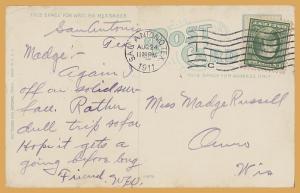 THIS SPACE FOR WRITING MESSAGES
POST
San Antonio
Tex
SAN ANTONIO, TEX
AUG 24
1911
Madge:-
Again
off on solid sur-
face. Rather
dull trip so far
Hope it gets a
going before long
Friend, W.F.D.
Miss Madge Russell
Omro
Wis